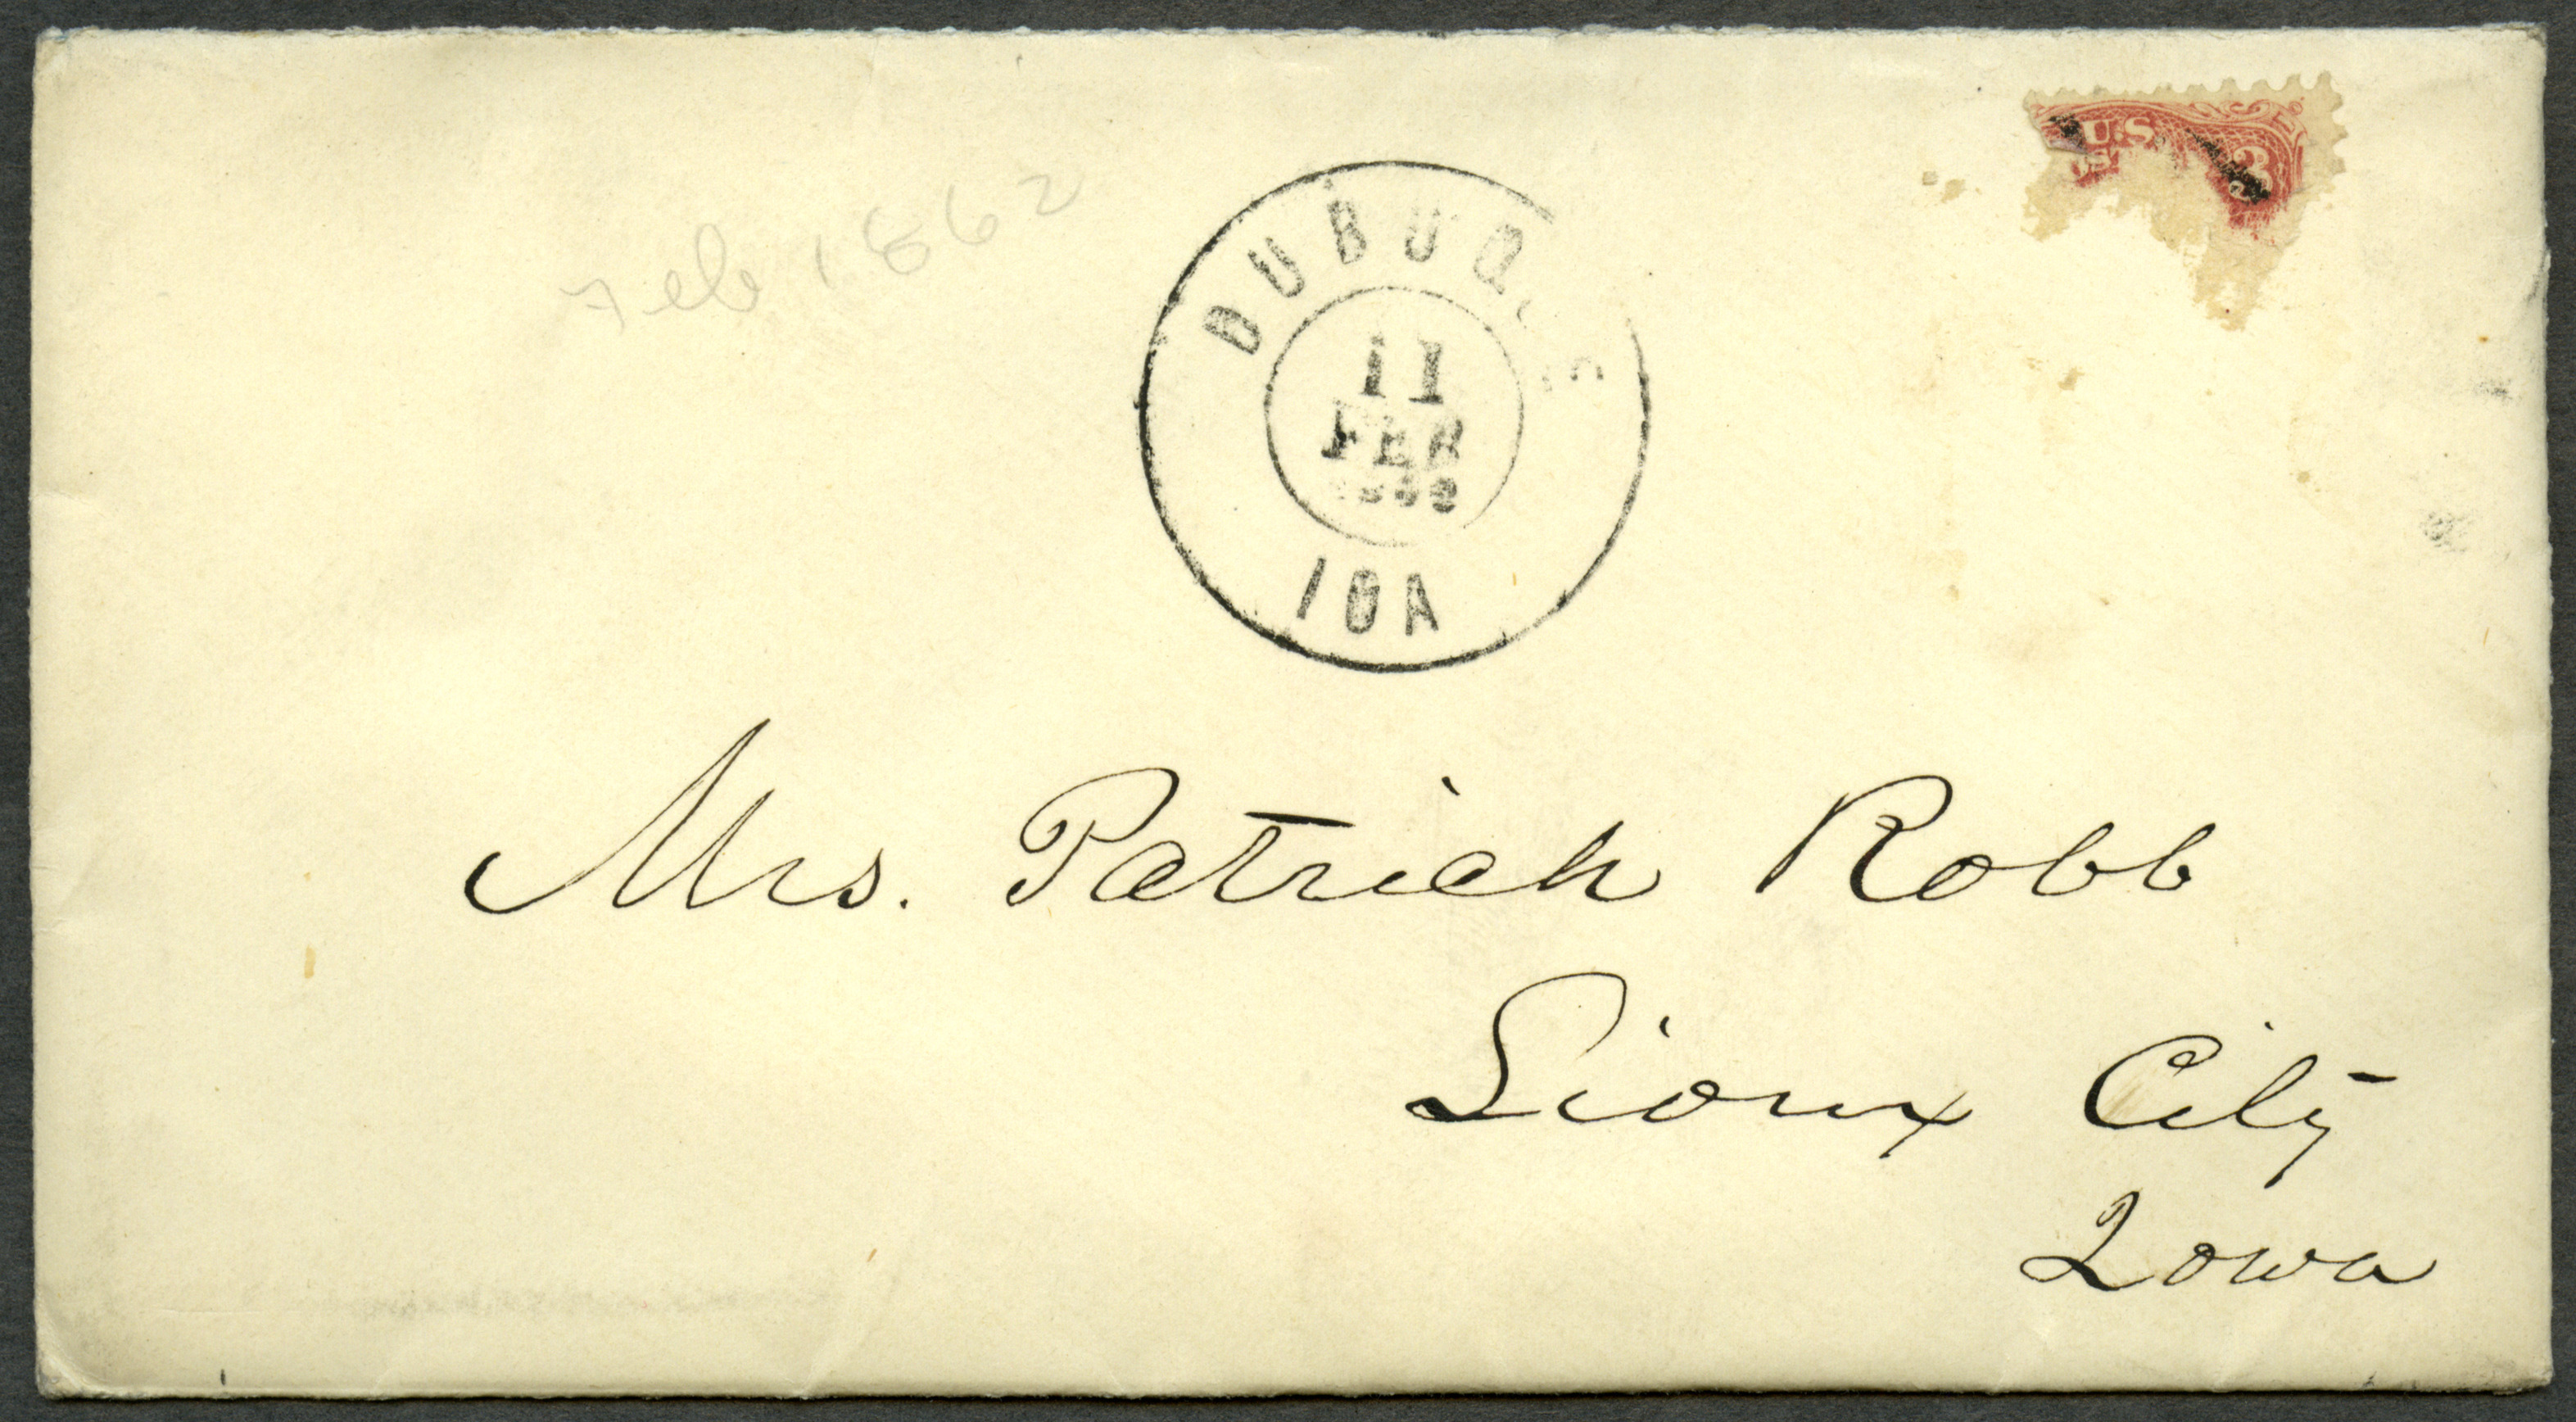 Feb 1862
U.S.
3
DUBUQUE
11
FEB
1862
IOA
Mrs. Patrick Robb
Sioux City
Iowa